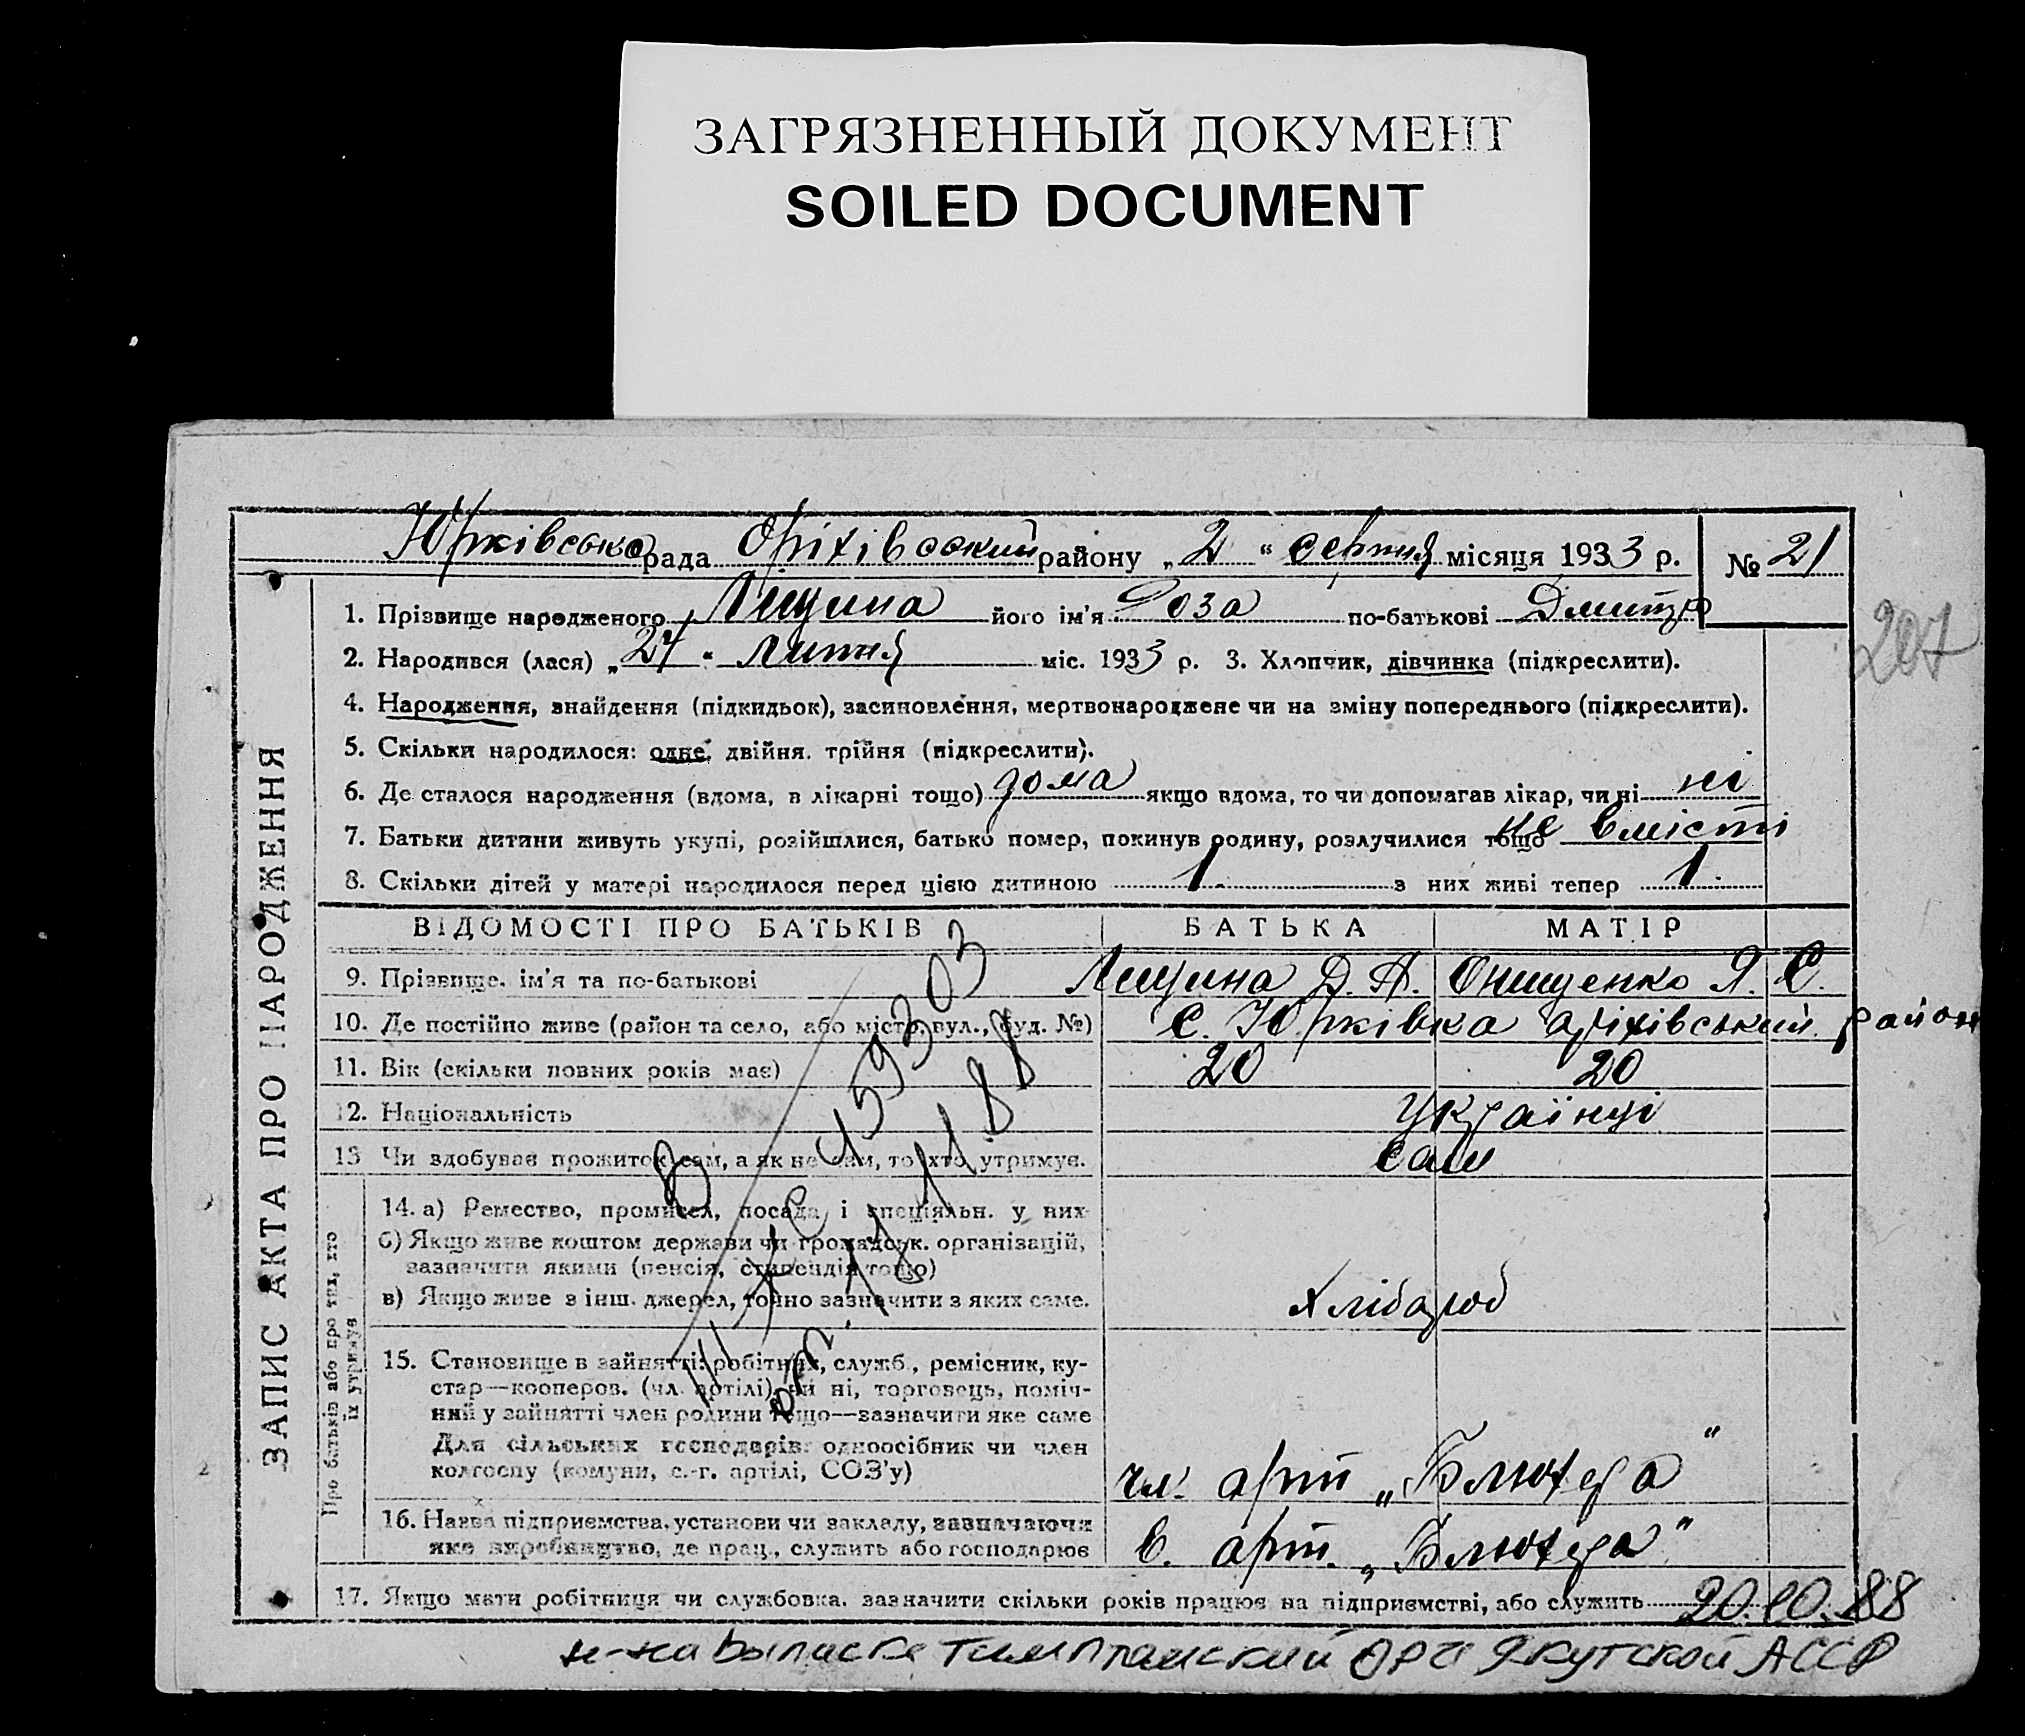 ЗАГРЯЗНЕННЫЙ ДОКУМЕНТ
SOILED DOCUMENT
Юрківська рада Оріхівський району „2“ серпня місяця 1933 р. № 21
207
ЗАПИС АКТА ПРО НАРОДЖЕННЯ
1. Прізвище народженого Лищина його ім'я Роза по-батькові Дмитр
2. Народився (лася) „24“ липня міс. 1933 р. 3. Хлопчик, дівчинка (підкреслити).
4. Народження, знайдення (підкидьок), засиновлення, мертвонароджене чи на зміну попереднього (підкреслити).
5. Скільки народилося: одне, двійня, трійня (підкреслити).
6. Де сталося народження (вдома, в лікарні тощо) дома якщо вдома, то чи допомагав лікар, чи ні ні
7. Батьки дитини живуть укупі, розійшлися, батько помер, покинув родину, розлучилися тощо не вмісті
8. Скільки дітей у матері народилося перед цією дитиною 1 з них живі тепер 1
ВІДОМОСТІ ПРО БАТЬКІВ БАТЬКА МАТІР
9. Прізвище, ім'я та по-батькові Лищина Д. А. Онищенко Я. С.
10. Де постійно живе (район та село, або місто, вул., буд. №) с. Юрківка оріхівський район
11. Вік (скільки повних років має) 20 20
12. Національність Українці
13 Чи здобуває прожиток сам, а як не сам, то хто утримує. сам
Про батьків або про тих, хто їх утримує
14. а) Ремество, промисел, посада і спеціяльн. у них
б) Якщо живе коштом держави чи громадськ. організацій,
зазначити якими (пенсія, стипендія тощо)
в) Якщо живе з інш. джерел, точно зазначити з яких саме. хлібороб
15. Становище в зайнятті: робітник, служб., ремісник, ку-
стар—кооперов. (чл. артілі) чи ні, торговець, поміч-
ний у зайнятті член родини тощо—зазначити яке саме
Для сільських господарів: одноосібник чи член
колгоспу (комуни, с.-г. артілі, СОЗ'у) чл. арт „Блюхера"
16. Назва підприємства, установи чи закладу, зазначаючи
яке виробництво, де прац., служить або господарює в. арт. „Блюхера"
17. Якщо мати робітниця чи службовка, зазначити скільки років працює на підприємстві, або служить 20.10.88
459303
от 11.88
выписка Тимптонский Якутской АССР